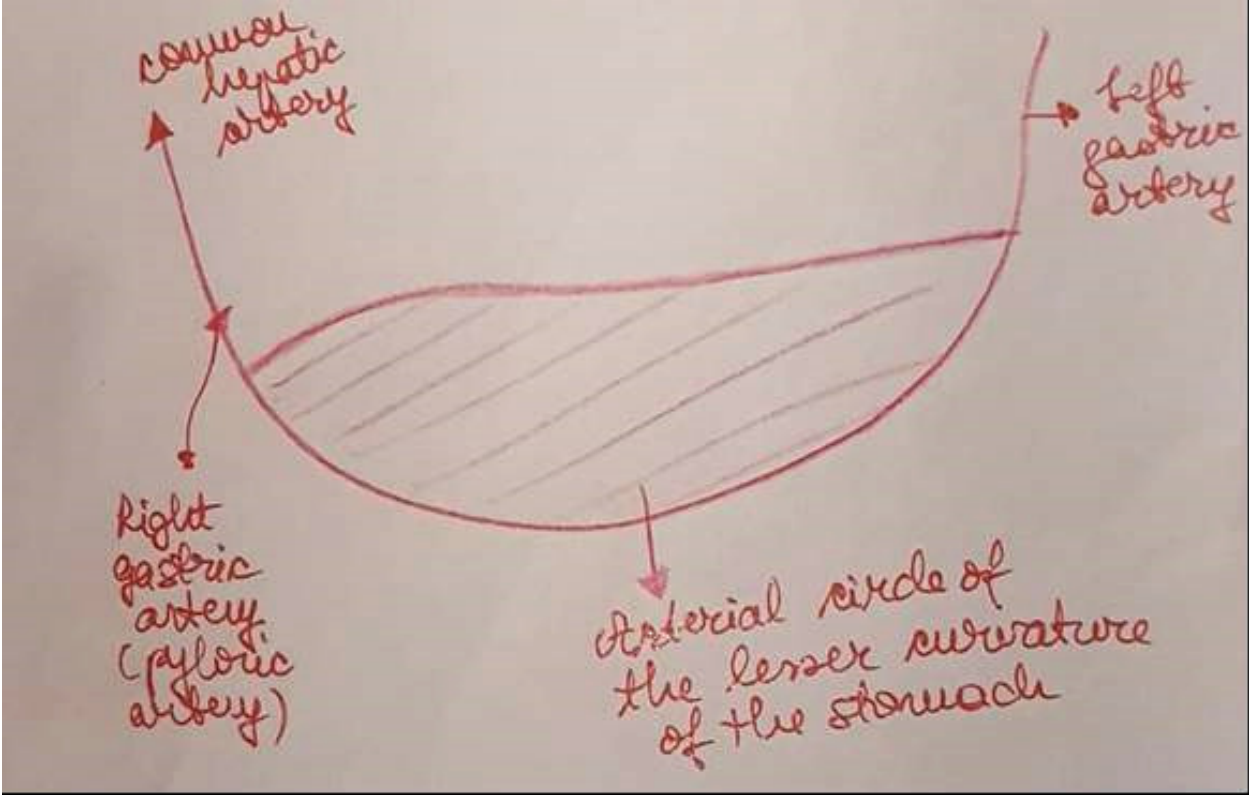 common
hepatic
artery
Left
gastric
artery
Right
gastric
artery
(pyloric
artery)
Arterial circle of
the lesser curvature
of the stomach